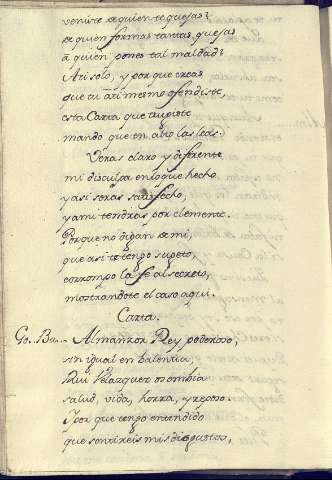 venirte de quien te quejas?
de quien formas tantas quejas
a quien pones tal maldad?
A ti solo, y porque creas
que tu a ti mesmo ofendiste,
esta Carta que scriviste
mando que en alto las leas.
Veras claro y diferente
mi disculpa en lo que he hecho
y asi seras satisfecho,
y a mi tendras por clemente.
Porque no digan de mi,
que asi te tengo sujeto,
corrompo la fe al secreto,
mostrandote el caso aqui.
Carta.
Go. Bu.- Almanzor Rey poderoso,
sin igual en balentia,
Rui Velazquez os ombia
salud, vida, honra, y reposo.
Y por que tengo entendido
que sentireis mis disgustos,